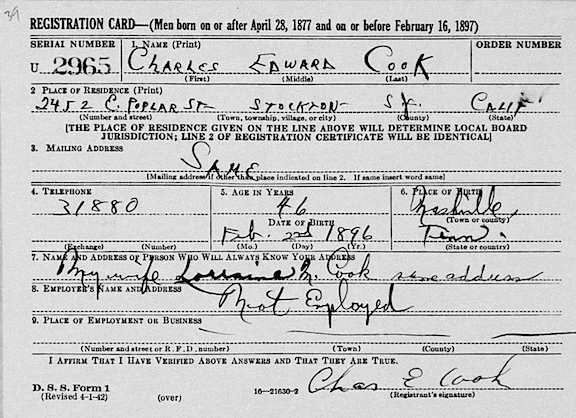 39
REGISTRATION CARD—(Men born on or after April 28, 1877 and on or before February 16, 1897)
SERIAL NUMBER 1. NAME (Print) ORDER NUMBER
U 2965 CHARLES EDWARD COOK
(First) (Middle) (Last)
2 PLACE OF RESIDENCE (Print)
2452 E. POPLAR ST STOCKTON S.J. CALIF
(Number and street) (Town, township, village, or city) (County) (State)
[THE PLACE OF RESIDENCE GIVEN ON THE LINE ABOVE WILL DETERMINE LOCAL BOARD
JURISDICTION; LINE 2 OF REGISTRATION CERTIFICATE WILL BE IDENTICAL]
3. MAILING ADDRESS
SAME
[Mailing address if other than place indicated on line 2. If same insert word same]
4. TELEPHONE 5. AGE IN YEARS 6. PLACE OF BIRTH
31880 46 Nashville,
DATE OF BIRTH (Town or county)
Feb. 22d 1896 Tenn.
(Exchange) (Number) (Mo.) (Day) (Yr.) (State or country)
7. NAME AND ADDRESS OF PERSON WHO WILL ALWAYS KNOW YOUR ADDRESS
My wife Lorraine M. Cook same address
8. EMPLOYER'S NAME AND ADDRESS
Not Employed
9. PLACE OF EMPLOYMENT OR BUSINESS
(Number and street or R. F. D. number) (Town) (County) (State)
I AFFIRM THAT I HAVE VERIFIED ABOVE ANSWERS AND THAT THEY ARE TRUE.
D. S. S. Form 1
(Revised 4-1-42) (over) 16—21630-2 Chas E Cook
(Registrant's signature)